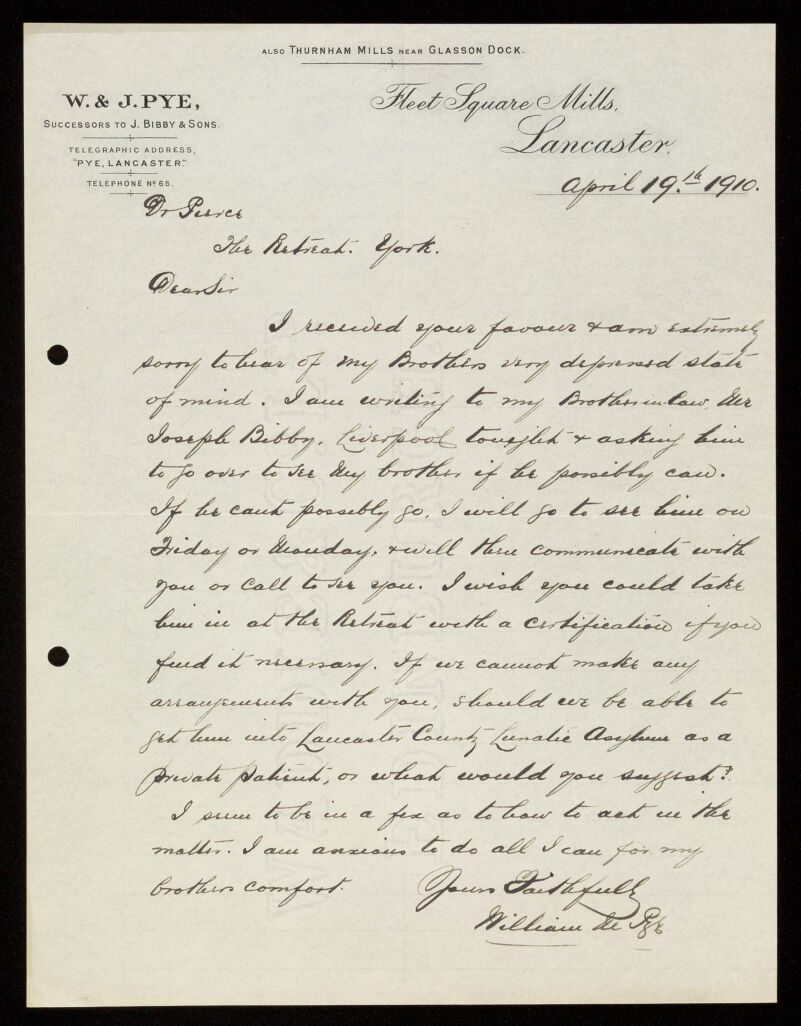 ALSO THURNHAM MILLS NEAR GLASSON DOCK.
W. & J. PYE,
SUCCESSORS TO J. BIBBY & SONS.
TELEGRAPHIC ADDRESS,
"PYE, LANCASTER."
TELEPHONE No 65.
Fleet Square Mills,
Lancaster,
April 19th 1910.
Dr Pierce
The Retreat. York.
Dear Sir
I received your favour & am extremely
sorry to hear of my Brothers very depressed state
of mind. I am writing to my Brother-in-law, Mr
Joseph Bibby, Liverpool tonight & asking him
to go over to see my brother if he possibly can.
If he cant possibly go, I will go to see him on
Friday or Monday, & will then communicate with
you or call to see you. I wish you could take
him in at the Retreat with a certification if you
find it necessary. If we cannot make any
arrangements with you, should we be able to
get him into Lancaster County Lunatic Asylum as a
private patient, or what would you suggest?
I seem to be in a fix as to how to act in the
matter. I am anxious to do all I can for my
brothers comfort. Yours Faithfully
William Pye